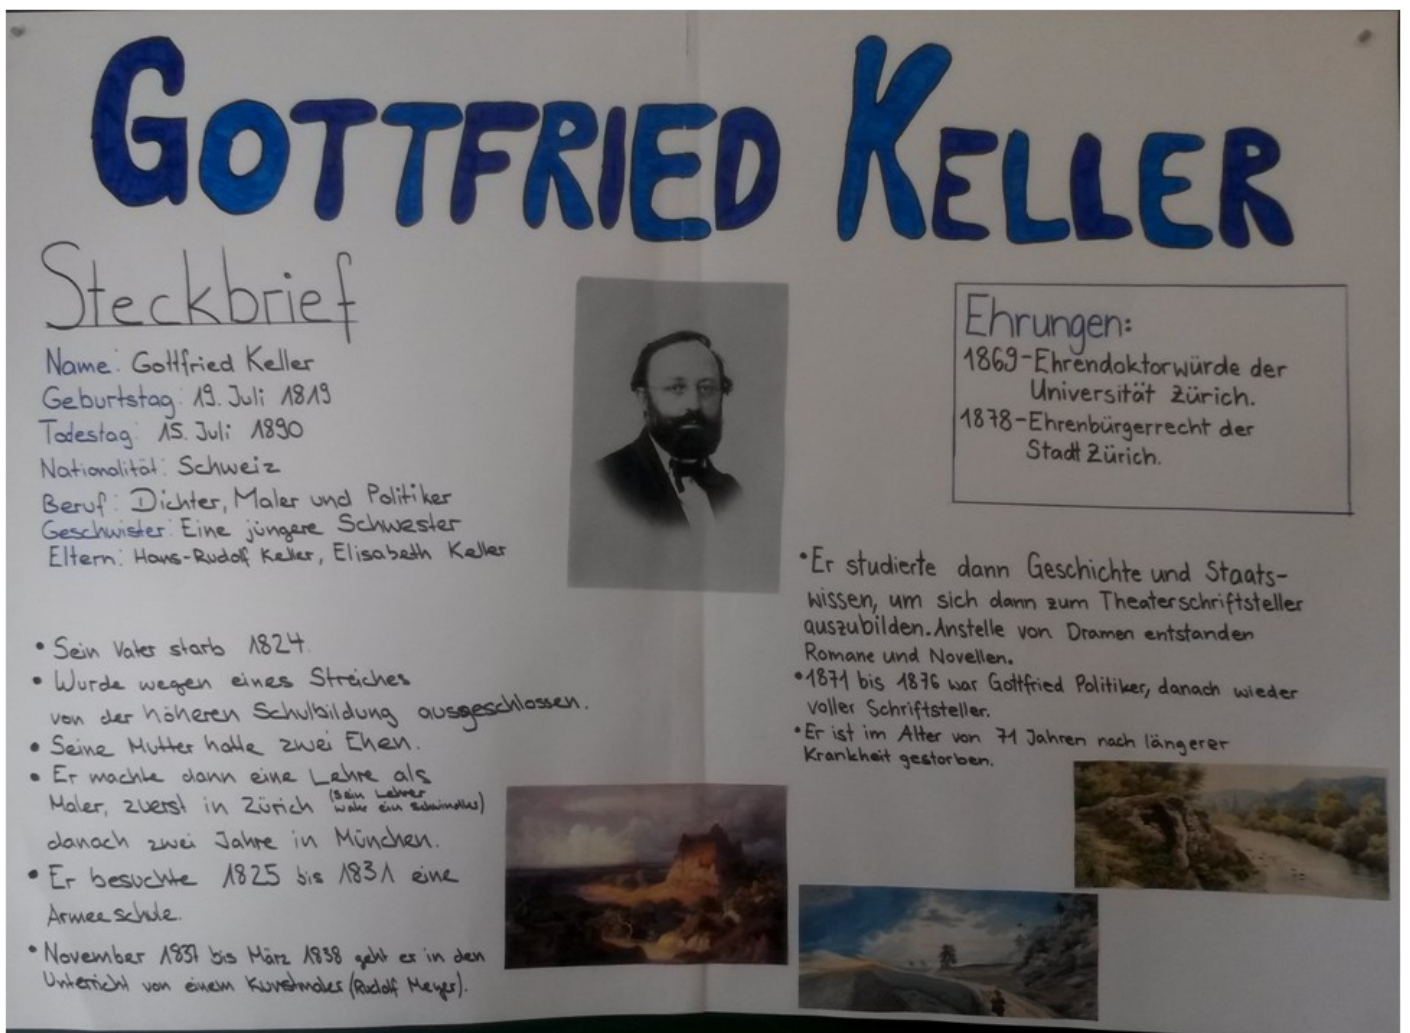 GOTTFRIED KELLER
Steckbrief
Name: Gottfried Keller
Geburtstag: 19. Juli 1819
Todestag: 15. Juli 1890
Nationalität: Schweiz
Beruf: Dichter, Maler und Politiker
Geschwister: Eine jüngere Schwester
Eltern: Hans-Rudolf Keller, Elisabeth Keller
• Sein Vater starb 1824.
• Wurde wegen eines Streiches
von der höheren Schulbildung ausgeschlossen.
• Seine Mutter hatte zwei Ehen.
• Er machte dann eine Lehre als
Maler, zuerst in Zürich (Sein Lehrer
wahr ein schwindler)
danach zwei Jahre in München.
• Er besuchte 1825 bis 1831 eine
Armeeschule.
• November 1837 bis März 1838 geht er in den
Unterricht von einem Kunstmaler (Rudolf Meyer).
Ehrungen:
1869-Ehrendoktorwürde der
Universität Zürich.
1878-Ehrenbürgerrecht der
Stadt Zürich.
• Er studierte dann Geschichte und Staats-
wissen, um sich dann zum Theaterschriftsteller
auszubilden. Anstelle von Dramen entstanden
Romane und Novellen.
• 1871 bis 1876 war Gottfried Politiker, danach wieder
voller Schriftsteller.
• Er ist im Alter von 71 Jahren nach längerer
Krankheit gestorben.